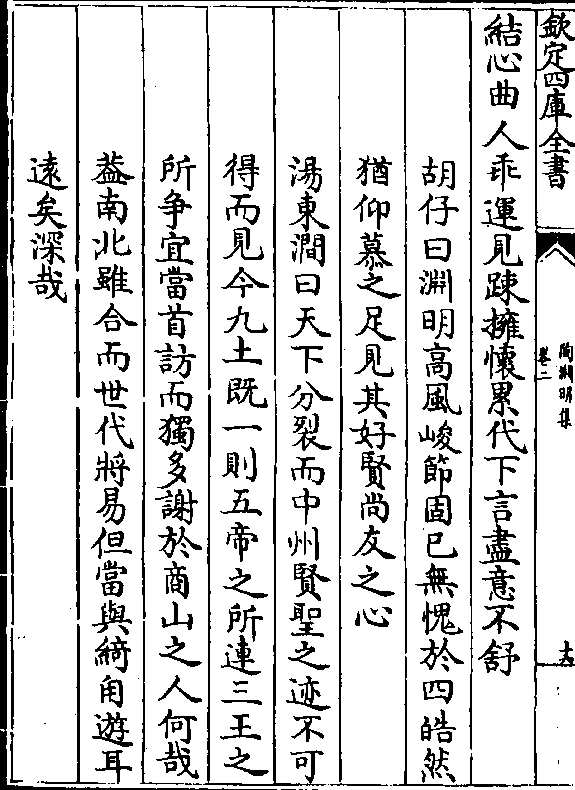 欽定四庫全書
陶淵明集
卷二
結心曲人乖運見踈擁懷累代下言盡意不舒
胡仔曰淵明髙風峻節固已無愧於四皓然
猶仰慕之足見其好賢尚友之心
湯東澗曰天下分裂而中州賢聖之迹不可
得而見今九土既一則五帝之所連三王之
所争宜當首訪而獨多謝於商山之人何哉
葢南北雖合而世代將易但當與綺甪遊耳
逺矣深哉